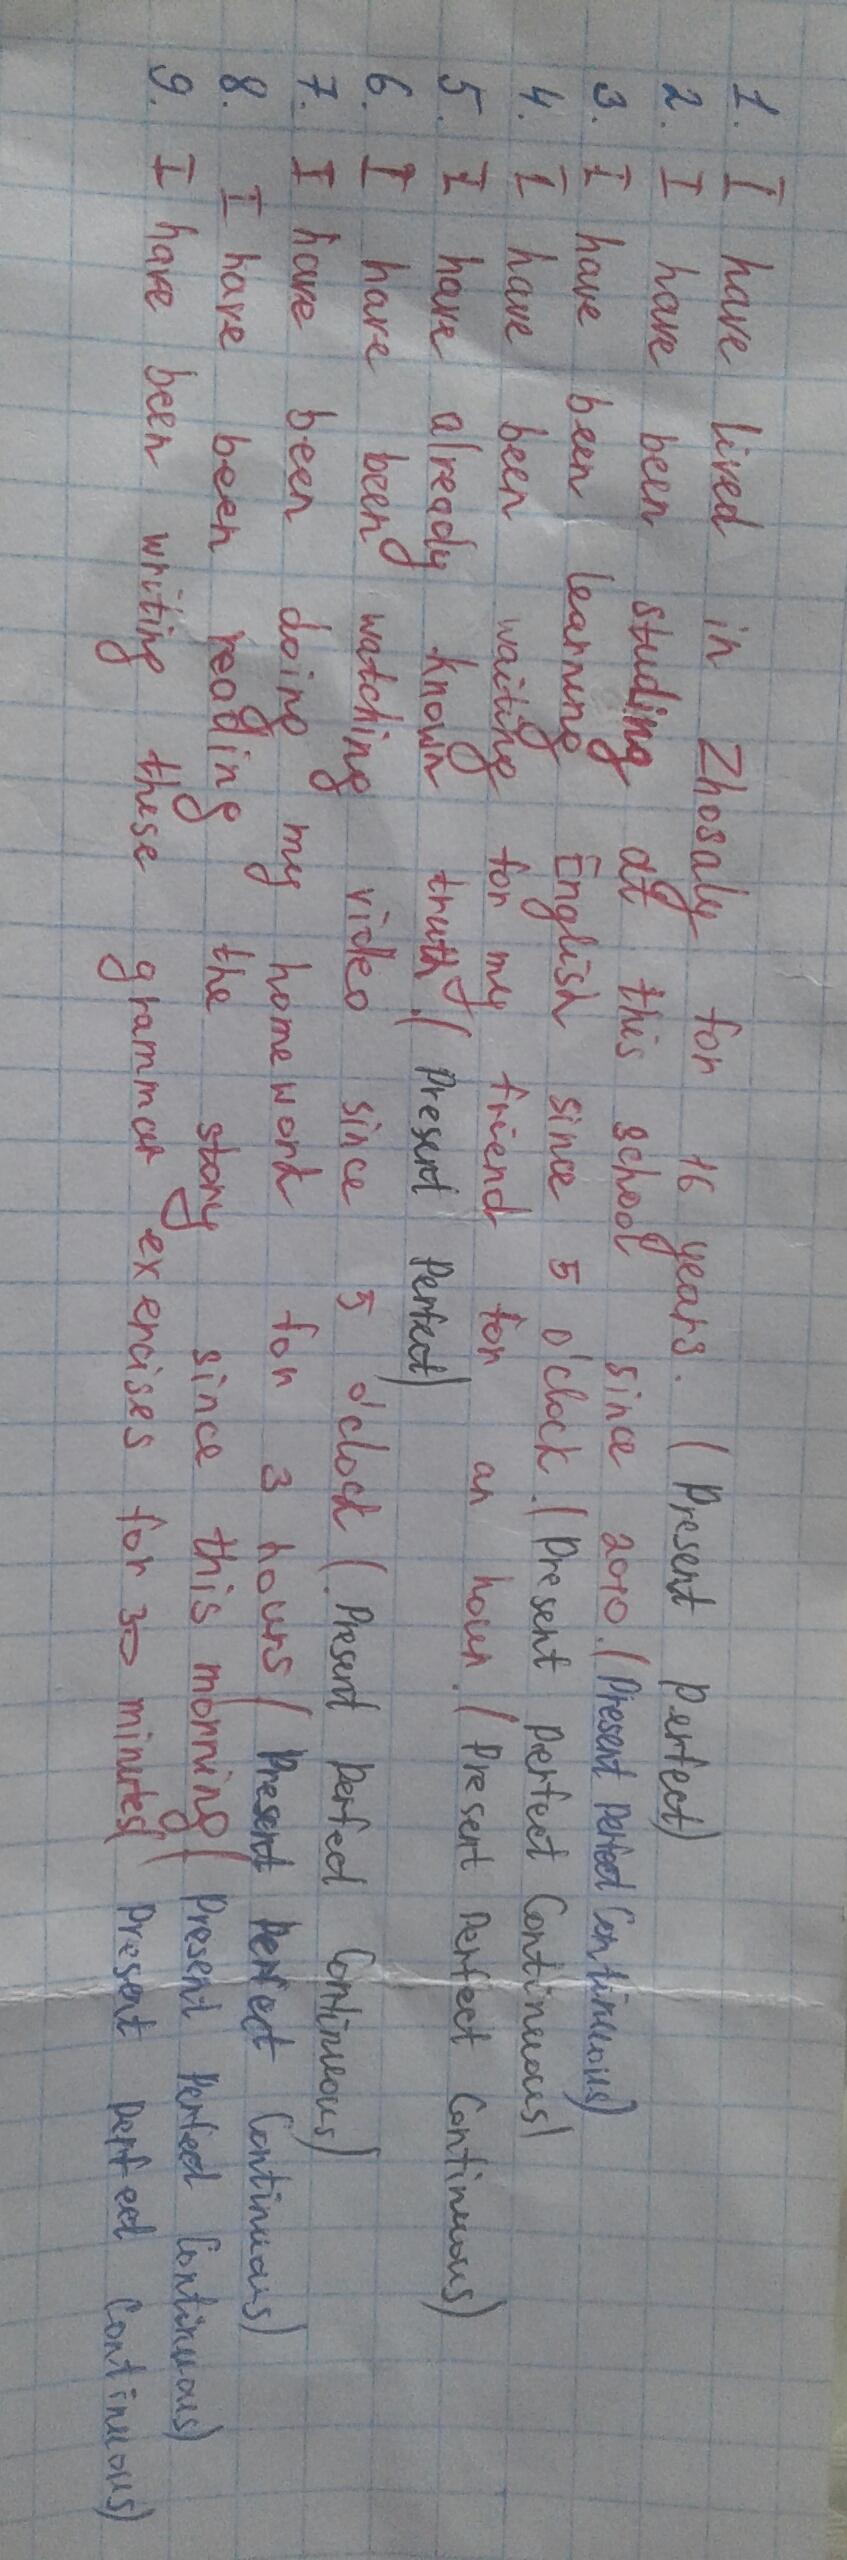 1. I have lived in Zhosaly for 16 years. (Present Perfect)
2. I have been studing at this school since 2010. (Present Perfect Continuous)
3. I have been learning English since 5 o'clock. (Present Perfect Continuous)
4. I have been waiting for my friend for an hour. (Present Perfect Continuous)
5. I have already known truth. (Present Perfect)
6. I have been watching video since 5 o'clock (Present Perfect Continuous)
7. I have been doing my homework for 3 hours (Present Perfect Continuous)
8. I have been reading the story since this morning (Present Perfect Continuous)
9. I have been writing these grammar exercises for 30 minutes (Present Perfect Continuous)